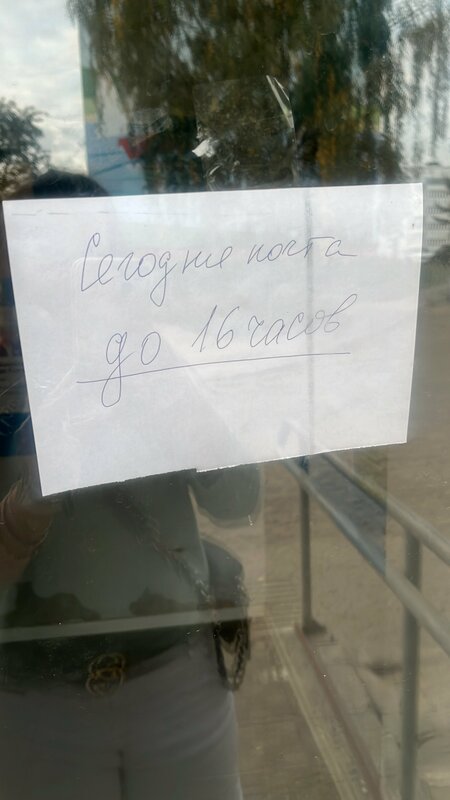 Сегодня почта
до 16 часов